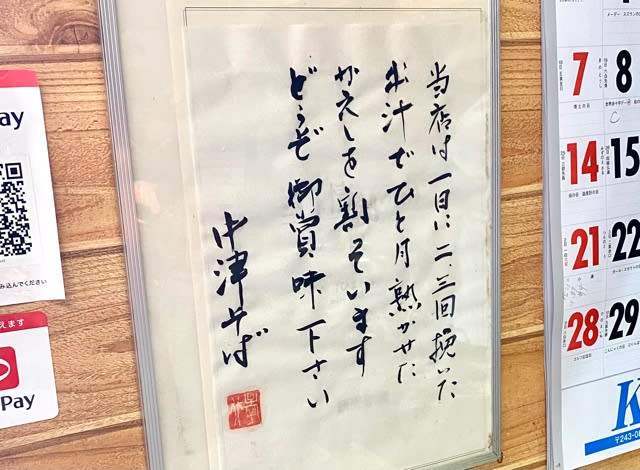 当店は一日に二、三回挽いた
出汁でひと月熟かせた
かえしを割そいます
どうぞ御賞味下さい
中津そば
ay
Pay
み込んでください
えます
7
8
14
15
21
22
28
29
K
〒243-0